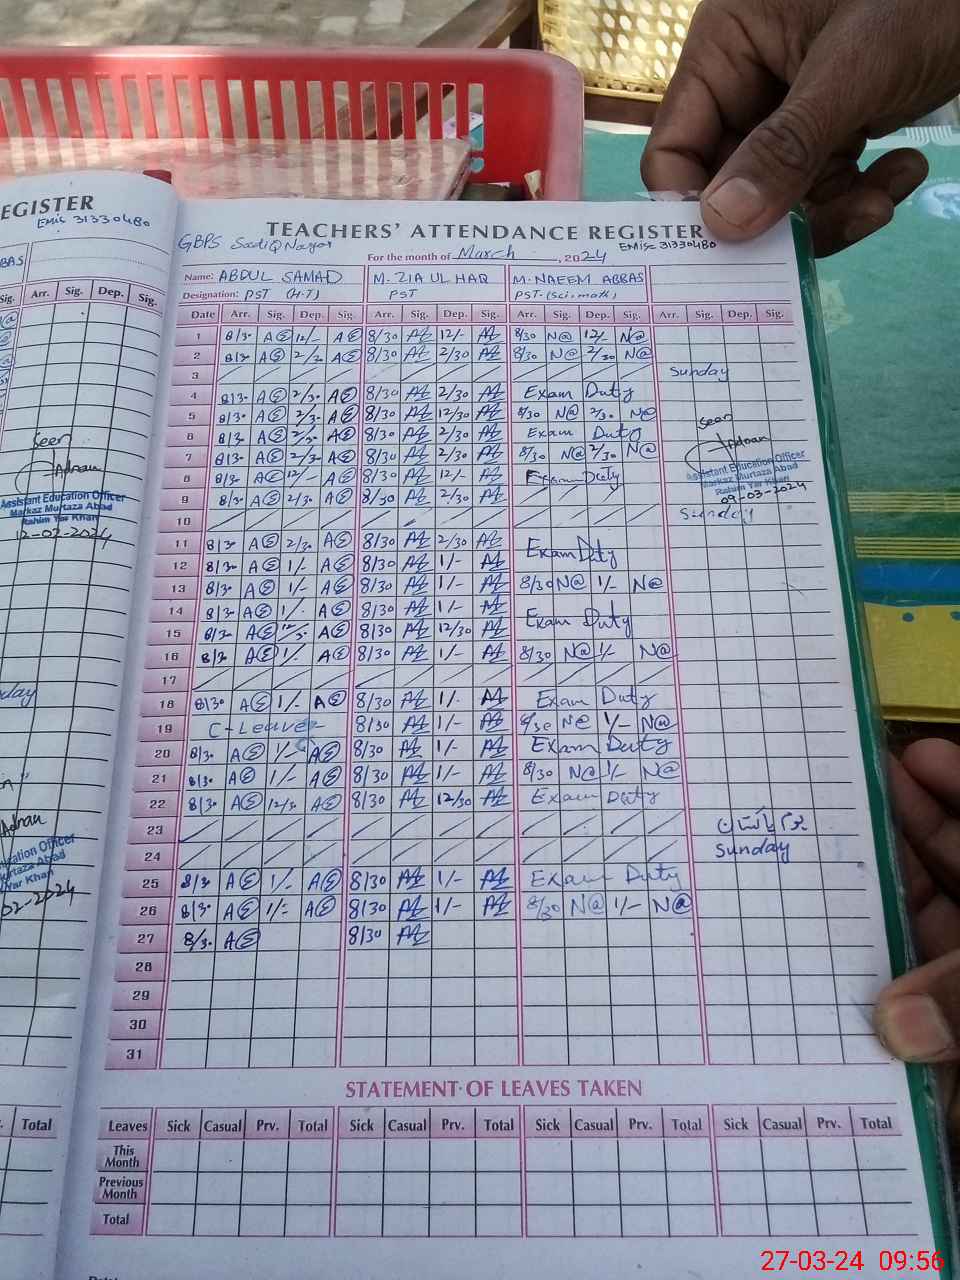 EGISTER
EMIS 31330480
BAS
Sig. Arr. Sig. Dep. Sig.
Seen
Adnan
Assistant Education Officer
Markaz Murtaza Abad
Rahim Yar Khan
12-02-2024
day
Adnan
cation Officer
rtaza Abad
Yar Khan
02-2024
Total
TEACHERS' ATTENDANCE REGISTER
GBPS SadiQ Nagar
EMISc 31330480
For the month of March, 2024
Name: ABDUL SAMAD M. ZIA UL HAQ M. NAEEM ABBAS
Designation: PST (H.T) PST PST-(Sci.math)
Date Arr. Sig. Dep. Sig. Arr. Sig. Dep. Sig. Arr. Sig. Dep. Sig. Arr. Sig. Dep. Sig.
1 8/30 12/- 8/30 12/- 8/30 N@ 12/- N@
2 8/30 2/30 8/30 2/30 8/30 N@ 2/30 N@
3 Sunday
4 8/30 2/30 8/30 2/30 Exam Duty
5 8/30 2/30 8/30 12/30 8/30 N@ 2/30 N@
6 8/30 2/30 8/30 2/30 Exam Duty
7 8/30 2/30 8/30 2/30 8/30 N@ 2/30 N@
8 8/30 12/- 8/30 12/- Exam Duty
9 8/30 2/30 8/30 2/30
Seen
Adnan
Assistant Education Officer
Markaz Murtaza Abad
Rahim Yar Khan
09-03-2024
10 Sunday
11 8/30 2/30 8/30 2/30 Exam Duty
12 8/30 1/- 8/30 1/-
13 8/30 1/- 8/30 1/- 8/30 N@ 1/- N@
14 8/30 1/- 8/30 1/- Exam Duty
15 8/30 12/30 8/30 12/30
16 8/30 1/- 8/30 1/- 8/30 N@ 1/- N@
17
18 8/30 1/- 8/30 1/- Exam Duty
19 C-Leave 8/30 1/- 8/30 N@ 1/- N@
20 8/30 1/- 8/30 1/- Exam Duty
21 8/30 1/- 8/30 1/- 8/30 N@ 1/- N@
22 8/30 12/30 8/30 12/30 Exam Duty
23 یوم پاکستان
24 Sunday
25 8/30 1/- 8/30 1/- Exam Duty
26 8/30 1/- 8/30 1/- 8/30 N@ 1/- N@
27 8/30 8/30
28
29
30
31
STATEMENT OF LEAVES TAKEN
Leaves Sick Casual Prv. Total Sick Casual Prv. Total Sick Casual Prv. Total Sick Casual Prv. Total
This Month
Previous Month
Total
27-03-24 09:56